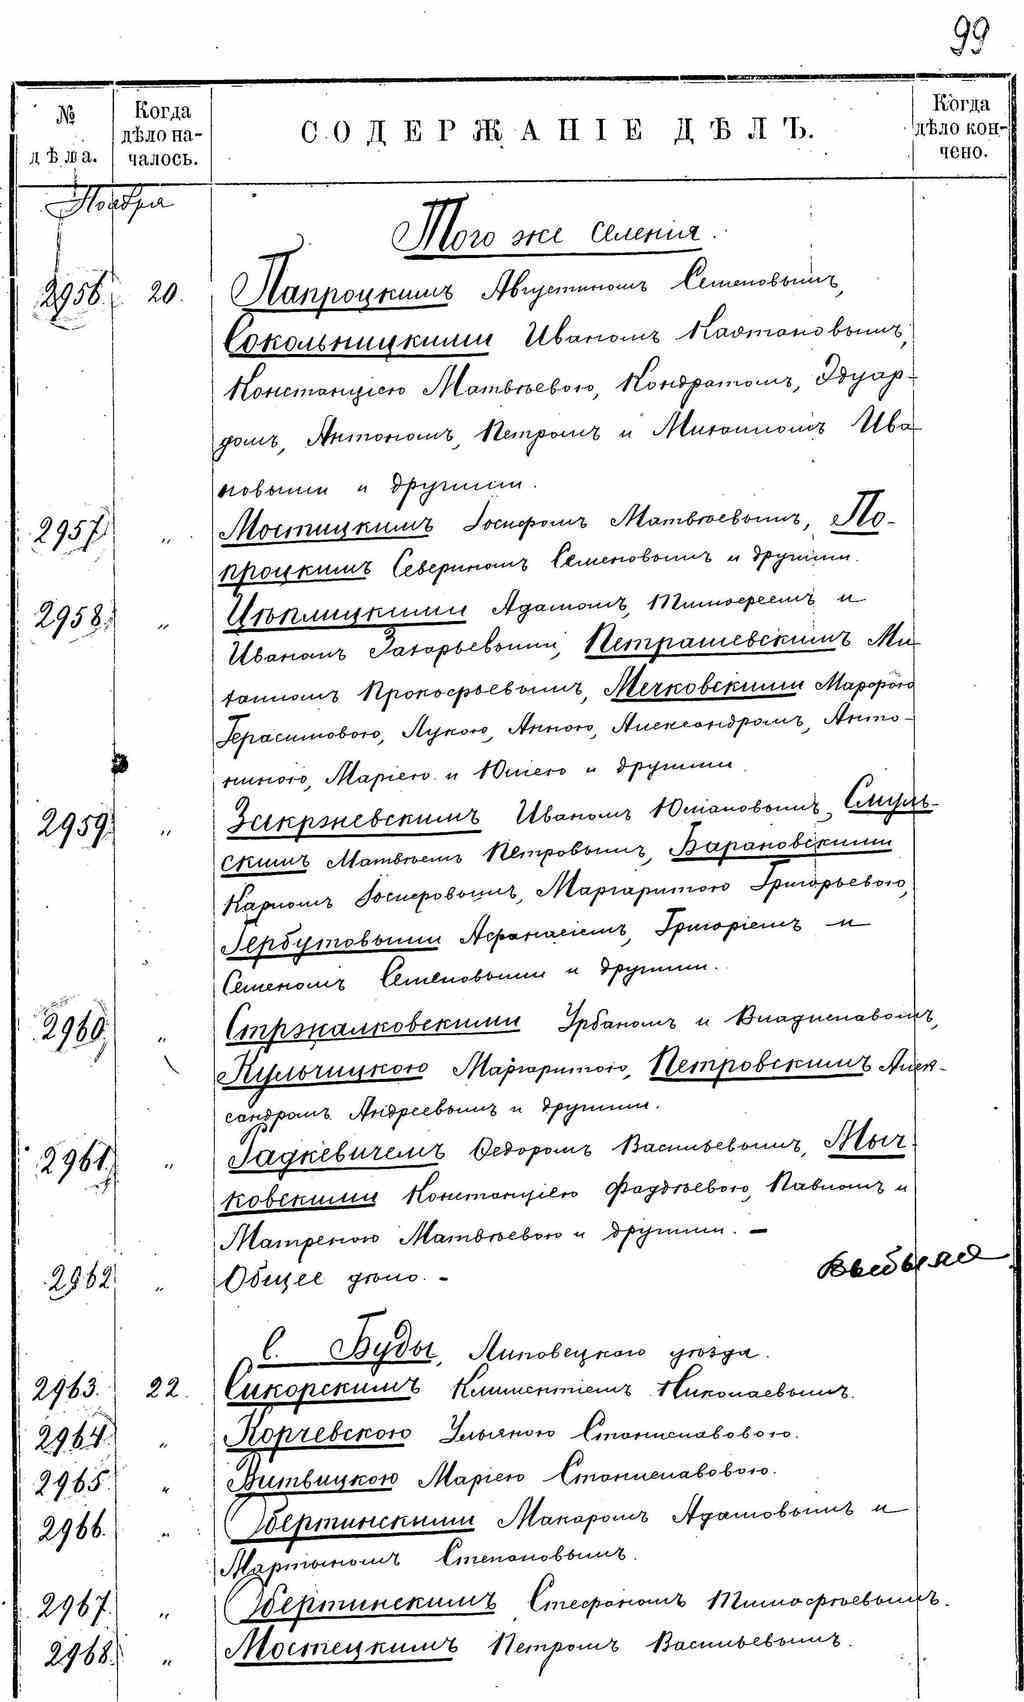 99
№ дѣла. Когда дѣло началось. СОДЕРЖАНІЕ ДѢЛЪ. Когда дѣло кончено.
Ноября
Того же селенія.
2956. 20. Папроцкимъ Августиномъ Семеновымъ,
Сокольницкими Иваномъ Каэтановымъ,
Констанціею Матвѣевою, Кондратомъ, Эдуар-
домъ, Антономъ, Петромъ и Михаиломъ Ива
новыми и другими.
2957. " Мостицкимъ Іосифомъ Матвѣевымъ, По-
процкимъ Севериномъ Семеновымъ и другими.
2958. " Цѣплицкими Адамомъ, Тимофеемъ и
Иваномъ Захарьевыми, Петрашевскимъ Ми
хаиломъ Прокофьевымъ, Мечковскими Марфою
Герасимовою, Лукою, Анною, Александромъ, Анто-
ниною, Маріею и Юліею и другими
2959. " Закржевскимъ Иваномъ Юліановымъ, Смуль-
скимъ Матвѣемъ Петровымъ, Барановскими
Карломъ Іосифовымъ, Маргаритою Григорьевою,
Гербутовыми Афанасіемъ, Григоріемъ и
Семеномъ Семеновыми и другими.
2960. " Стржалковскими Урбаномъ и Владиславомъ,
Кульчицкою Маргаритою, Петровскимъ Алек-
сандромъ Андреевымъ и другими.
2961. " Гадкевичемъ Ѳедоромъ Васильевымъ, Мыч
ковскими Констанціею Фаддѣевою, Павломъ и
Матреною Матвѣевою и другими. –
2962 " Общее дѣло. - Выбыла
С. Буды, Липовецкаго уѣзда.
2963. 22. Сикорскимъ Климентіемъ Николаевымъ.
2964 " Корчевскою Ульяною Станиславовою.
2965. " Витвицкою Маріею Станиславовою.
2966. " Обертинскими Макаромъ Адамовымъ и
Мартыномъ Степановымъ.
2967. " Обертинскимъ Стефаномъ Тимофѣевымъ.
2968. " Мостецкимъ Петромъ Васильевымъ.